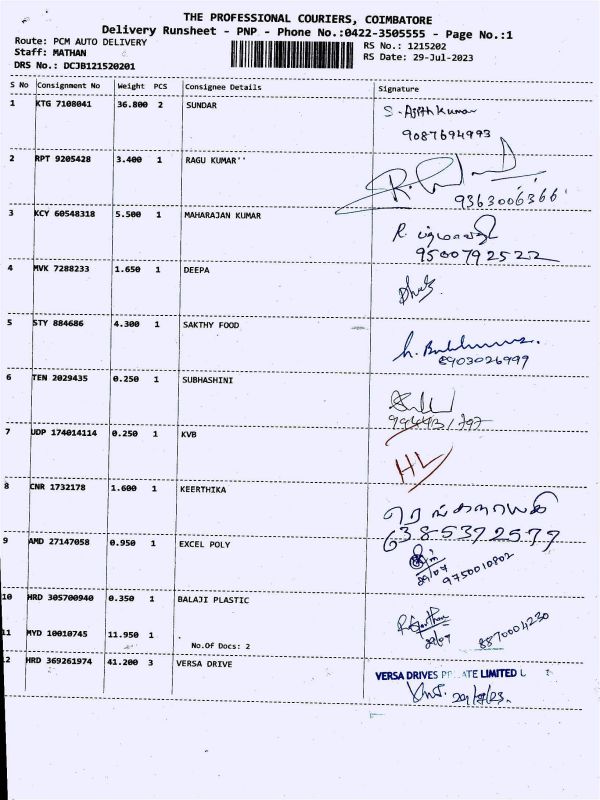 THE PROFESSIONAL COURIERS, COIMBATORE
Delivery Runsheet - PNP - Phone No.:0422-3505555 - Page No.:1
Route: PCM AUTO DELIVERY
RS No.: 1215202
Staff: MATHAN
RS Date: 29-Jul-2023
DRS No.: DCJB121520201
S No Consignment No Weight PCS Consignee Details Signature
1 KTG 7108041 36.800 2 SUNDAR S. Ajith Kumar
9087694993
2 RPT 9205428 3.400 1 RAGU KUMAR''
9363006366
3 KCY 60548318 5.500 1 MAHARAJAN KUMAR R.
9500792522
4 MVK 7288233 1.650 1 DEEPA
5 STY 884686 4.300 1 SAKTHY FOOD
8903026999
6 TEN 2029435 0.250 1 SUBHASHINI
7 UDP 174014114 0.250 1 KVB HL
8 CNR 1732178 1.600 1 KEERTHIKA ரெங்கநாயகி
6385372577
9 AMD 27147058 0.950 1 EXCEL POLY
29/07 9750010802
10 HRD 305700940 0.350 1 BALAJI PLASTIC
11 MYD 10010745 11.950 1
29/07 8870004230
No.Of Docs: 2
12 HRD 369261974 41.200 3 VERSA DRIVE VERSA DRIVES LIMITED